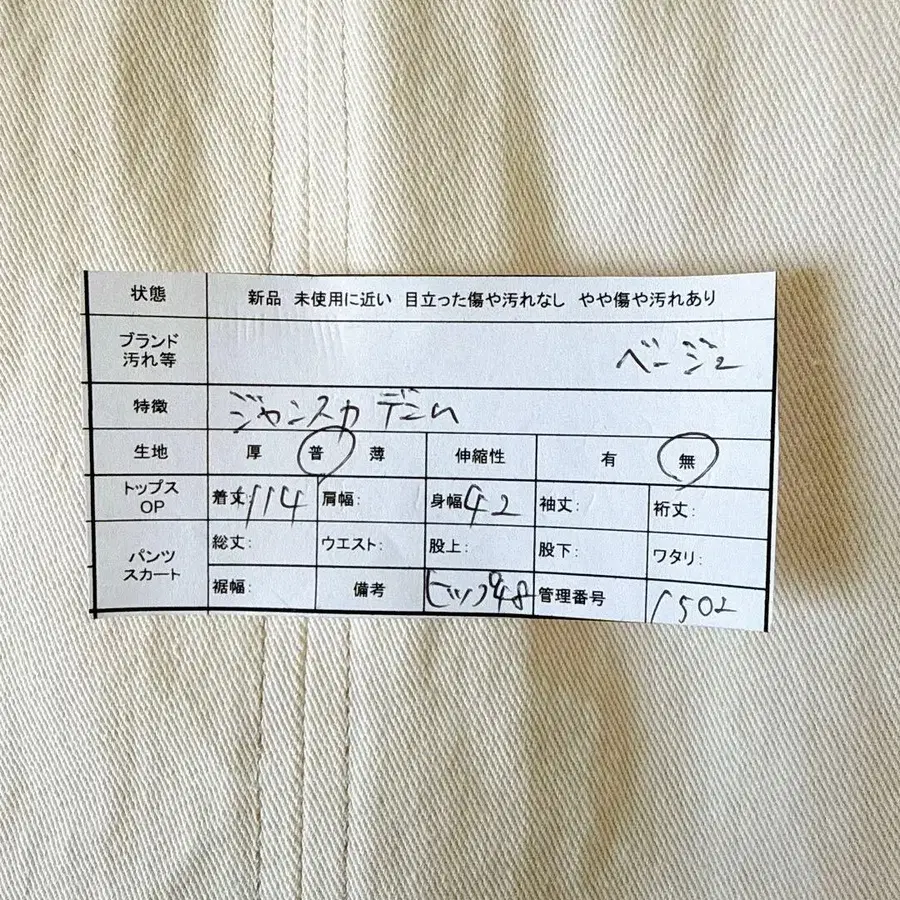 状態 新品 未使用に近い 目立った傷や汚れなし やや傷や汚れあり
ブランド
汚れ等 ベージュ
特徴 ジャンスカ デニム
生地 厚 普 薄 伸縮性 有 無
トップス
OP 着丈:114 肩幅: 身幅42 袖丈: 裄丈:
パンツ
スカート 総丈: ウエスト: 股上: 股下: ワタリ:
裾幅: 備考 ヒップ48 管理番号 1502